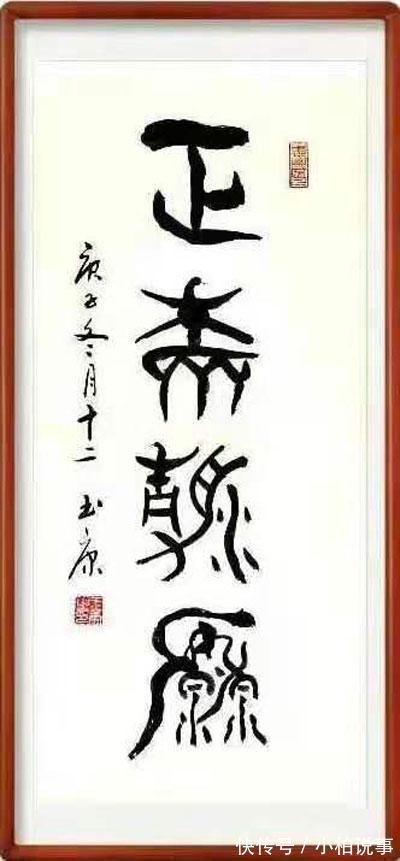 正本清源
庚子冬月十二
快传号/小柏说事